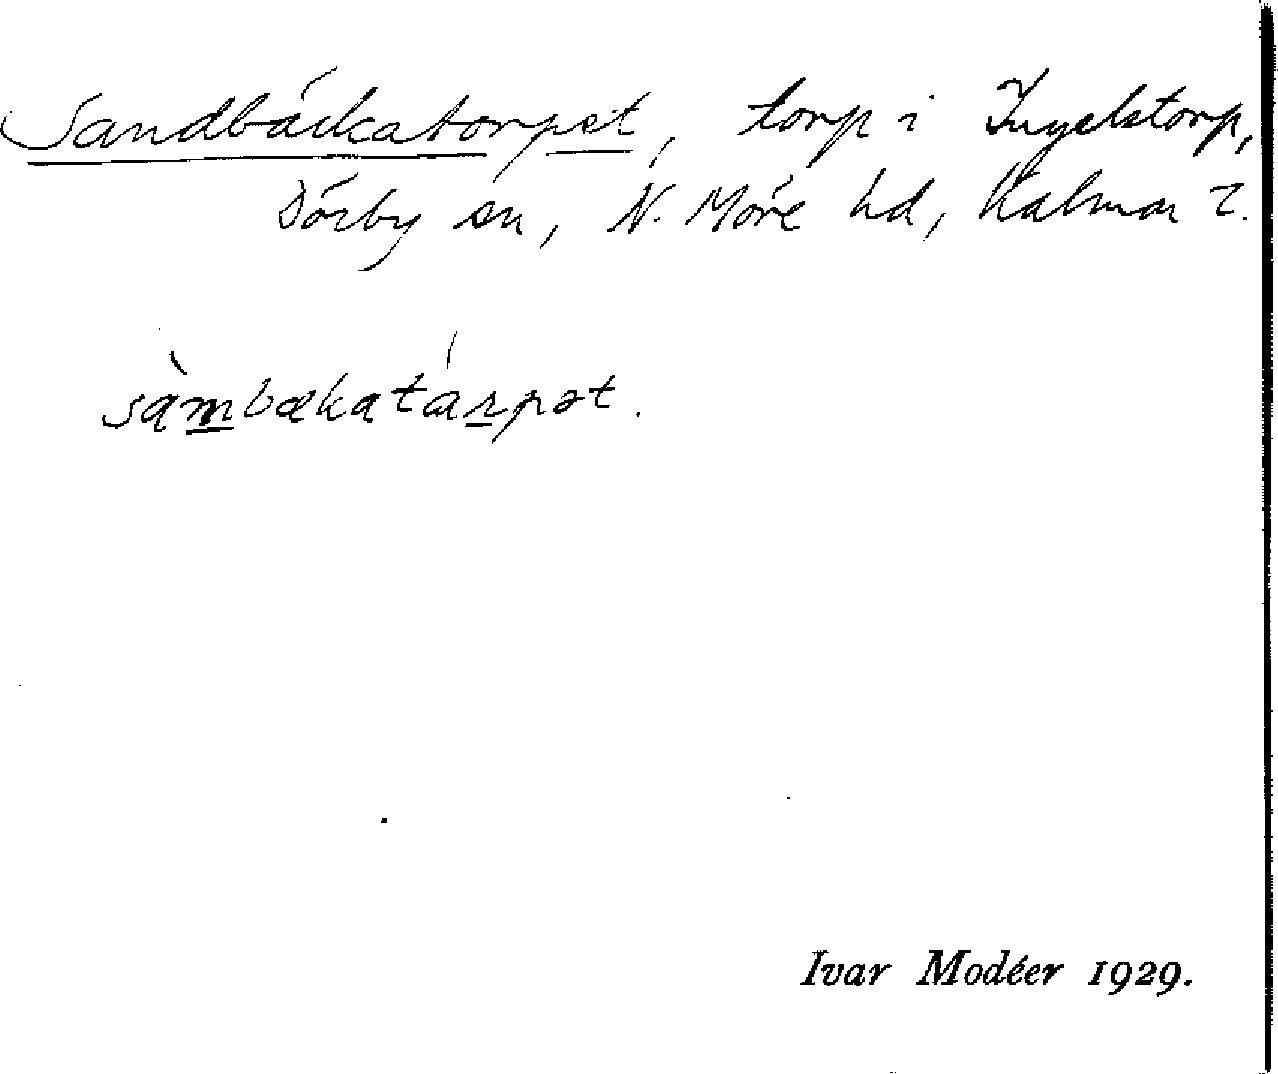 Sandbäckatorpet, torp i Ingelstorp,
Dörby sn, N. Möre hd, Kalmar l.
sàm̲bækatár̲pət.
Ivar Modéer 1929.